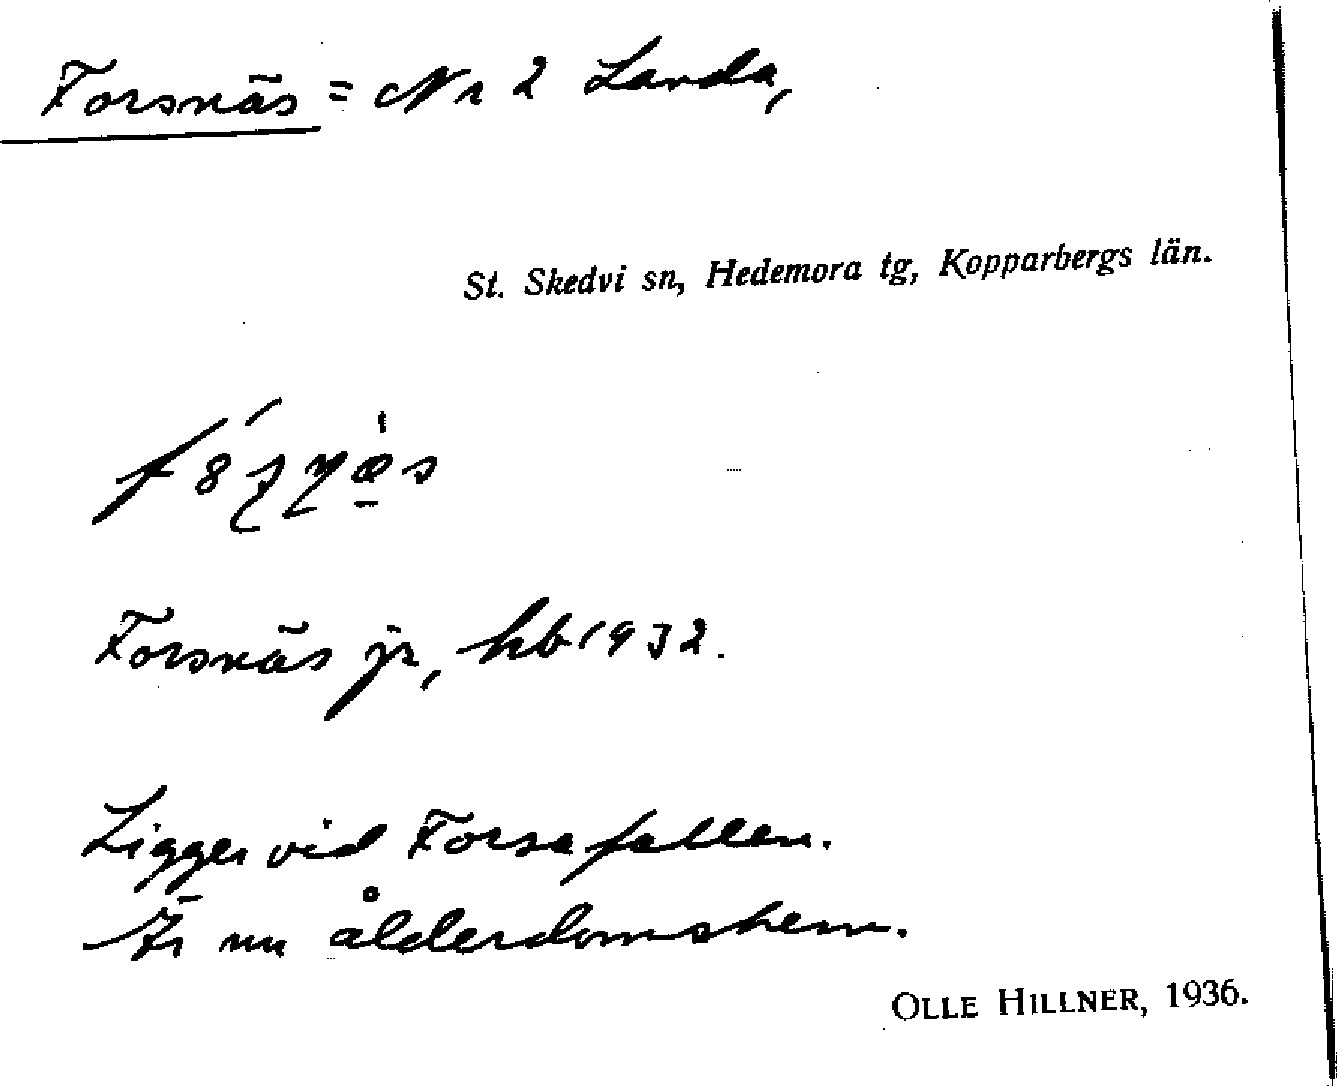 Forsnäs = Nr 2 Landa,
St. Skedvi sn, Hedemora tg, Kopparbergs län.
Forsnäs jr, hb 1932.
Ligger vid Forsafallen.
Är nu ålderdomshem.
OLLE HILLNER, 1936.